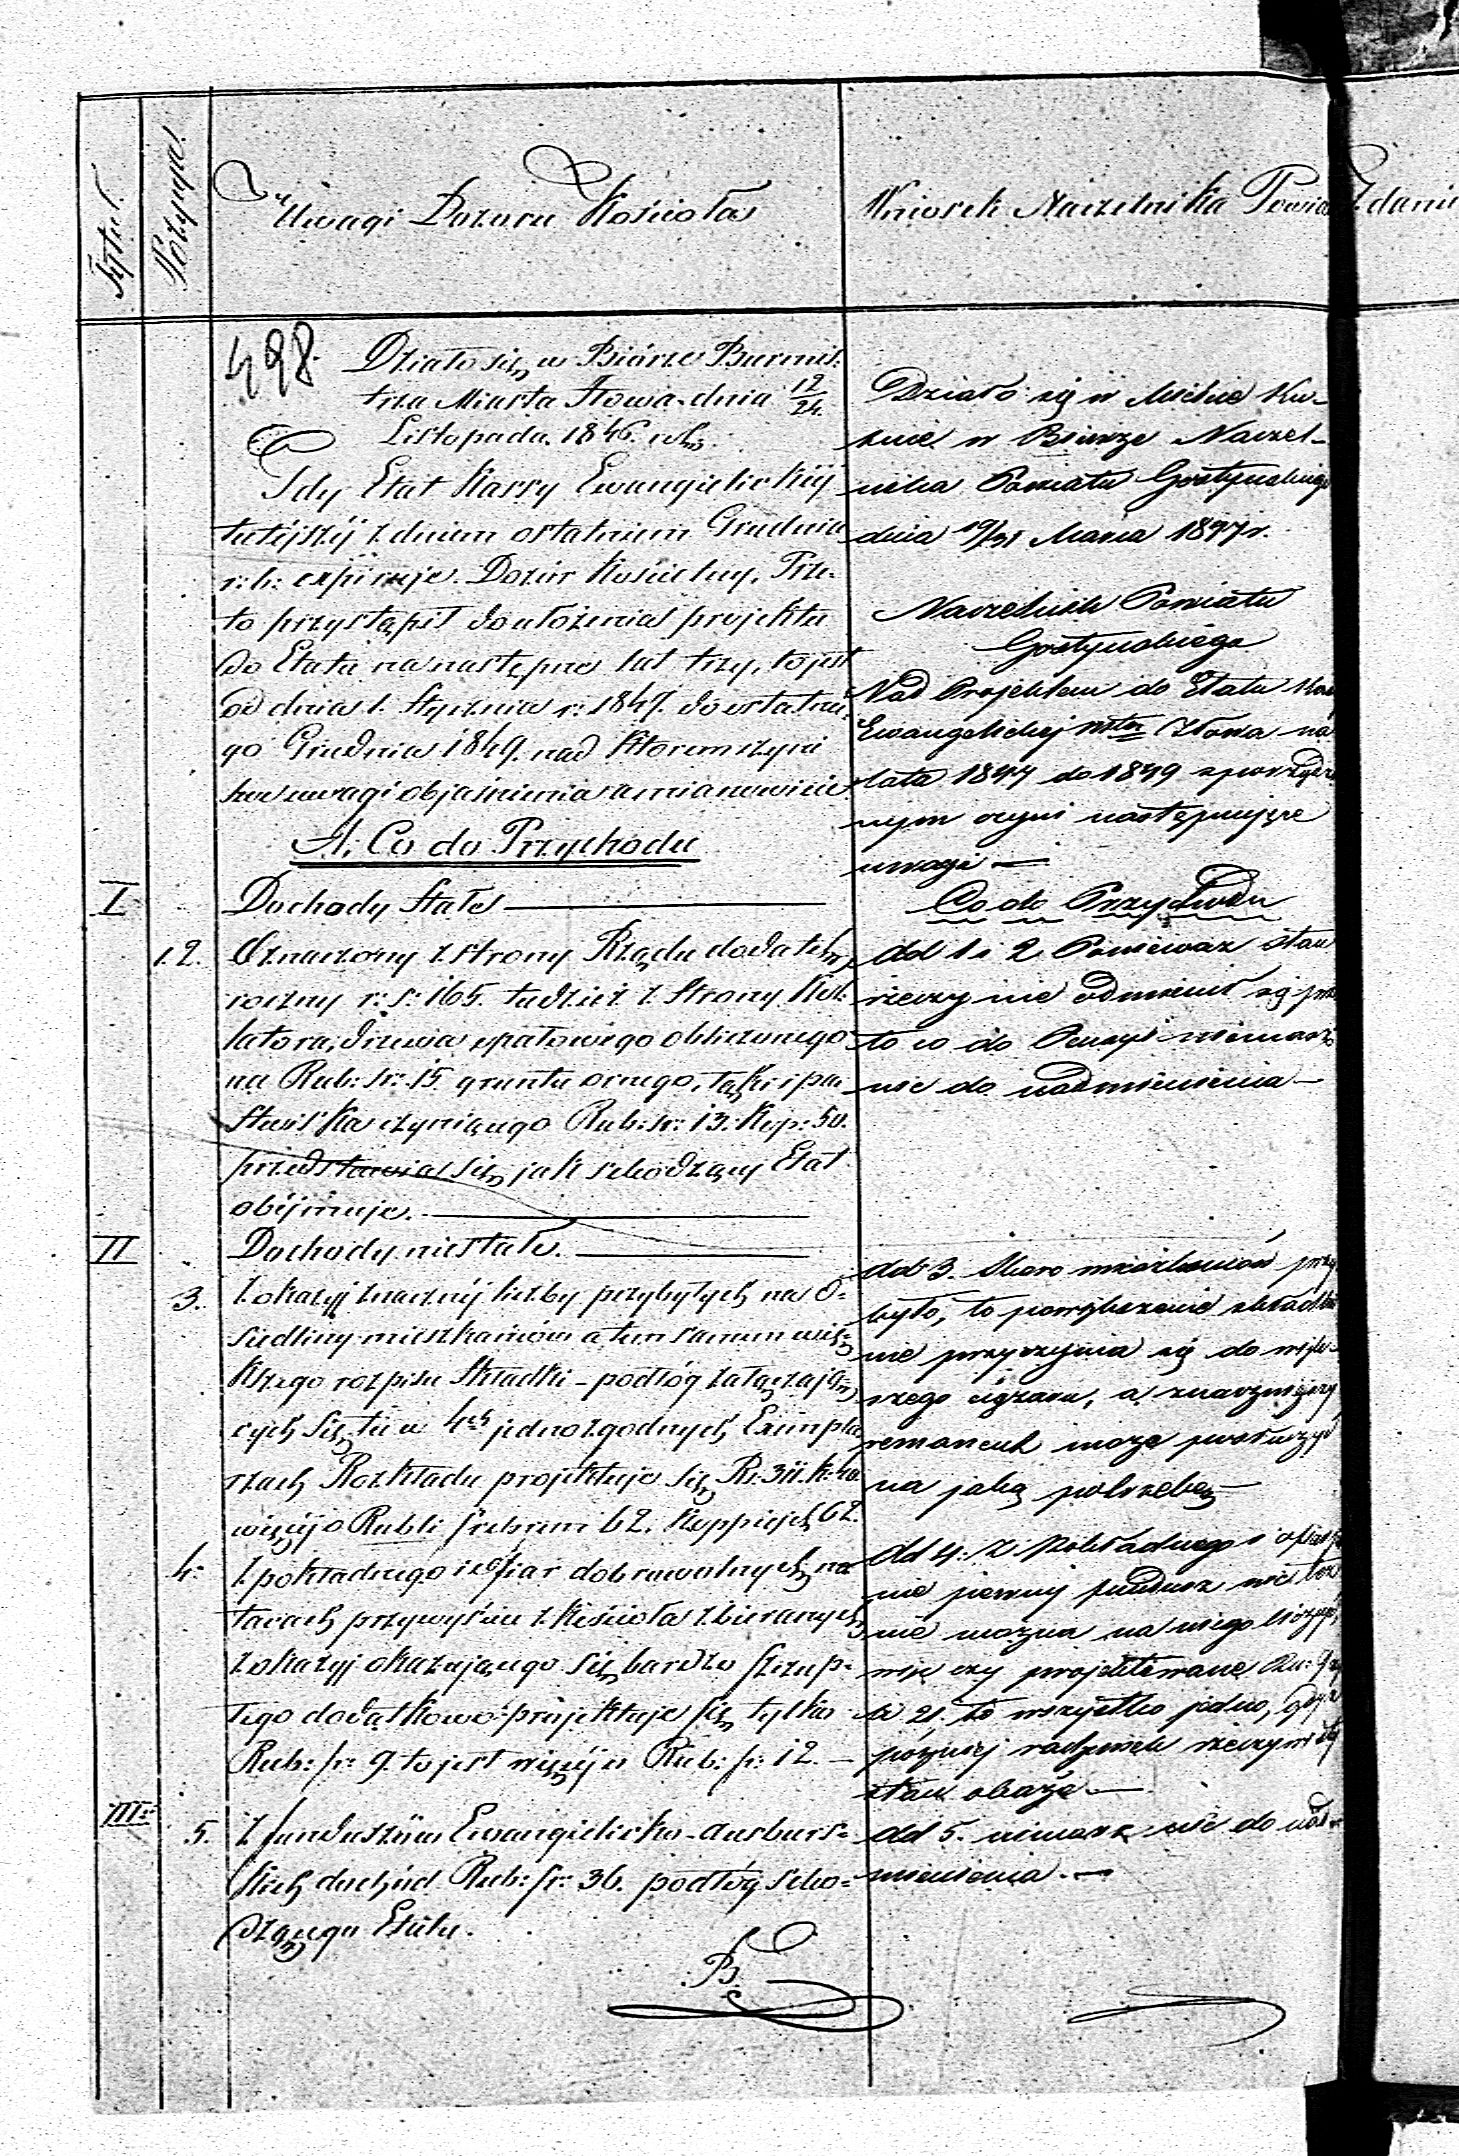 Tytuł.
Pozycya.
Uwagi Dozoru Kościoła
Wniosek Naczelnika Powia
Zdanie
498.
Działo się w Biórze Burmis-
trza Miasta Iłowa dnia 12/24
Listopada 1846. roku.
Gdy Etat Kassy Ewangielickiéj
tutéjszéj z dniem ostatnim Grudnia
r: b: expiruje. Dozór Kościelny, Prze-
to przystąpił do ułożenia projektu
do Etatu na następne lat trzy, to jest
od dnia 1. Stycznia r: 1847. do ostatnie-
go Grudnia 1849. nad którem czyni
swe uwagi objaśnienia a mianowicie.
A. Co do Przychodu
I
Dochody Stałe
1. 2.
Oznaczony z strony Rządu dodatek
roczny r: s: 165. tudzież z Strony Kol-
latora, drzewa opałowego obliczonego
na Rub: sr: 15 gruntu ornego, łąki i pa
stwiska czyniącego Rub: sr: 13. Kop: 50.
przedstawia się jak schodzący Etat
obéjmuje.
II
Dochody niestałe.
3.
Z okazyj znacznéj liczby przybyłych na O-
siedliny mieszkańców a tem samem wię-
kszego rozpisu Składki - podłóg załączają-
cych się tu w 4ch jednozgodnych Exempla
rzach Rozkładu projektuje się Rs: 311. k:
więcéj o Rubli srebrem 62. Koppiejek 62.
4.
Z pokładnego i ofiar dobrowolnych na
tacach przy wyściu z Kościoła zbieranych
z okazyj okazującego się bardzo szczup-
łego dodatkowo projektuje się tylko
Rub: sr: 9. to jest więcéj o Rub: sr: 12.
III.
5.
Z funduszów Ewangielicko-Ausburs-
kich dochód Rub: sr: 36. podłóg scho-
dzącego Etatu.
Działo się w Mieście Ku-
tnie w Biurze Naczel-
nika Powiatu Gostyńskiego
dnia 19/31 Marca 1847 r.
Naczelnik Powiatu
Gostyńskiego
Nad Projektem do Etatu Kas
Ewangelickiej mta Iłowa na
lata 1847 do 1849 sporządzo
nym czyni następujące
uwagi
Co do Przychodu
Ad 1 i 2 Ponieważ stan
rzeczy nie odmienił się prze
to co do Pensyi niemasz
nic do nadmienienia
Ad 3. Skoro mieszkańców przy
było, to powiększenie składki
nie przyczynia się do więk-
szego ciężaru, a znaczniejszy
remanent może posłużyć
na jaką potrzebę
Ad 4: Z Pokładnego i ofiar
nie pewnej fundusz
nie można na niego liczyć,
więc czy projektowane Rs: 9
21. to wszystko jedno, gdyż
później rachunek rzeczywisty
stan okaże
Ad 5. niemasz nic do nad-
mienienia.